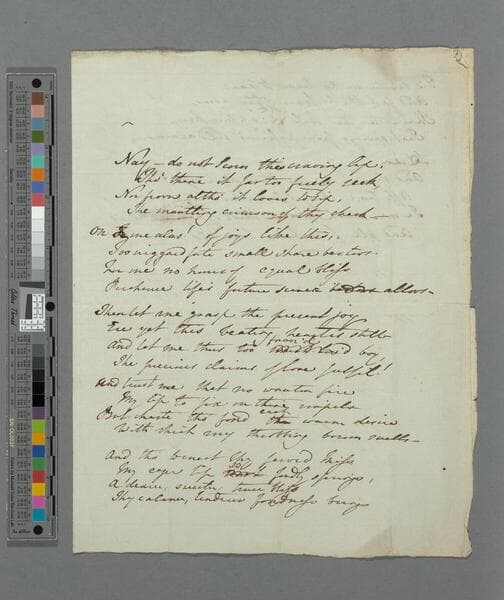 Nay – do not scorn this craving lip,
Tho' there it far too freely seek
Nor frown altho' it loves to sip,
The mantling crimson of thy cheek –
On me alas! of joys like this,
Too niggard fate small share bestows
For me no hours of equal bliss
Perchance life's future scenes allows –
Then let me grasp the present joy
Ere yet this beating heart is still
And let me thus too favor'd boy
The precious claims of love fulfil!
And trust me that no wanton fire
My lip to fix on thine impels
But chaste tho' fond each warm desire
With which my throbbing bosom swells –
And tho' beneath thy favor'd kiss
My eyes soft fondly
A dearer, sweeter, truer bliss
Thy calmer, tenderer fondness brings